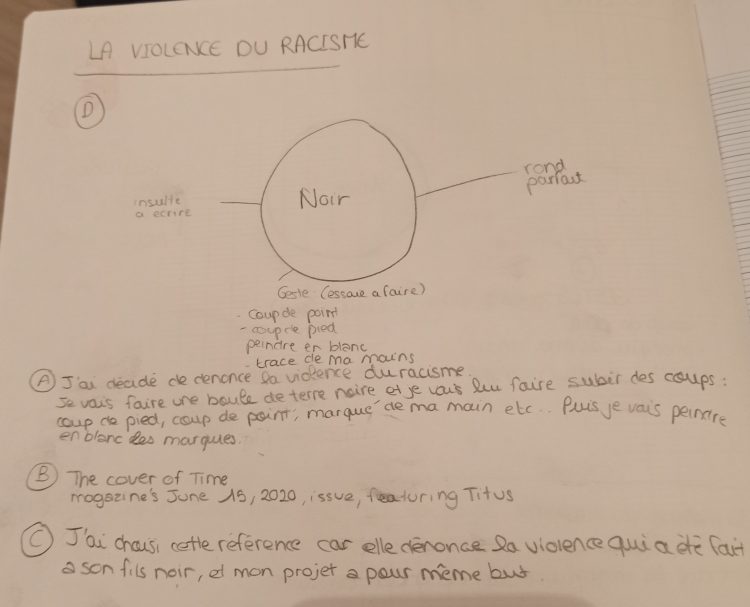 LA VIOLENCE DU RACISME
D
Noir
rond
parfait
insulte
a ecrire
Geste (essaie a faire)
- coup de point
- coup de pied
peindre en blanc
- trace de ma mains
A J'ai décidé de denonce la violence du racisme.
Je vais faire une boule de terre noire et je vais lui faire subir des coups :
coup de pied, coup de point, marque de ma main etc... Puis je vais peindre
en blanc les marques.
B The cover of Time
magazine's June 15, 2020, issue, featuring Titus
C J'ai choisi cette référence car elle dénonce la violence qui a été fait
a son fils noir, et mon projet a pour même but.